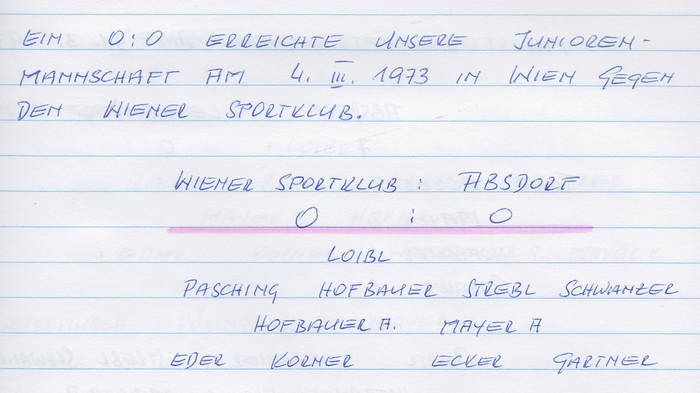 EIN 0:0 ERREICHTE UNSERE JUNIOREN-
MANNSCHAFT AM 4. III. 1973 IN WIEN GEGEN
DEN WIENER SPORTKLUB.
WIENER SPORTKLUB : ABSDORF
0 : 0
LOIBL
PASCHING HOFBAUER STREBL SCHWANZER
HOFBAUER A. MAYER A
EDER KORNER ECKER GARTNER